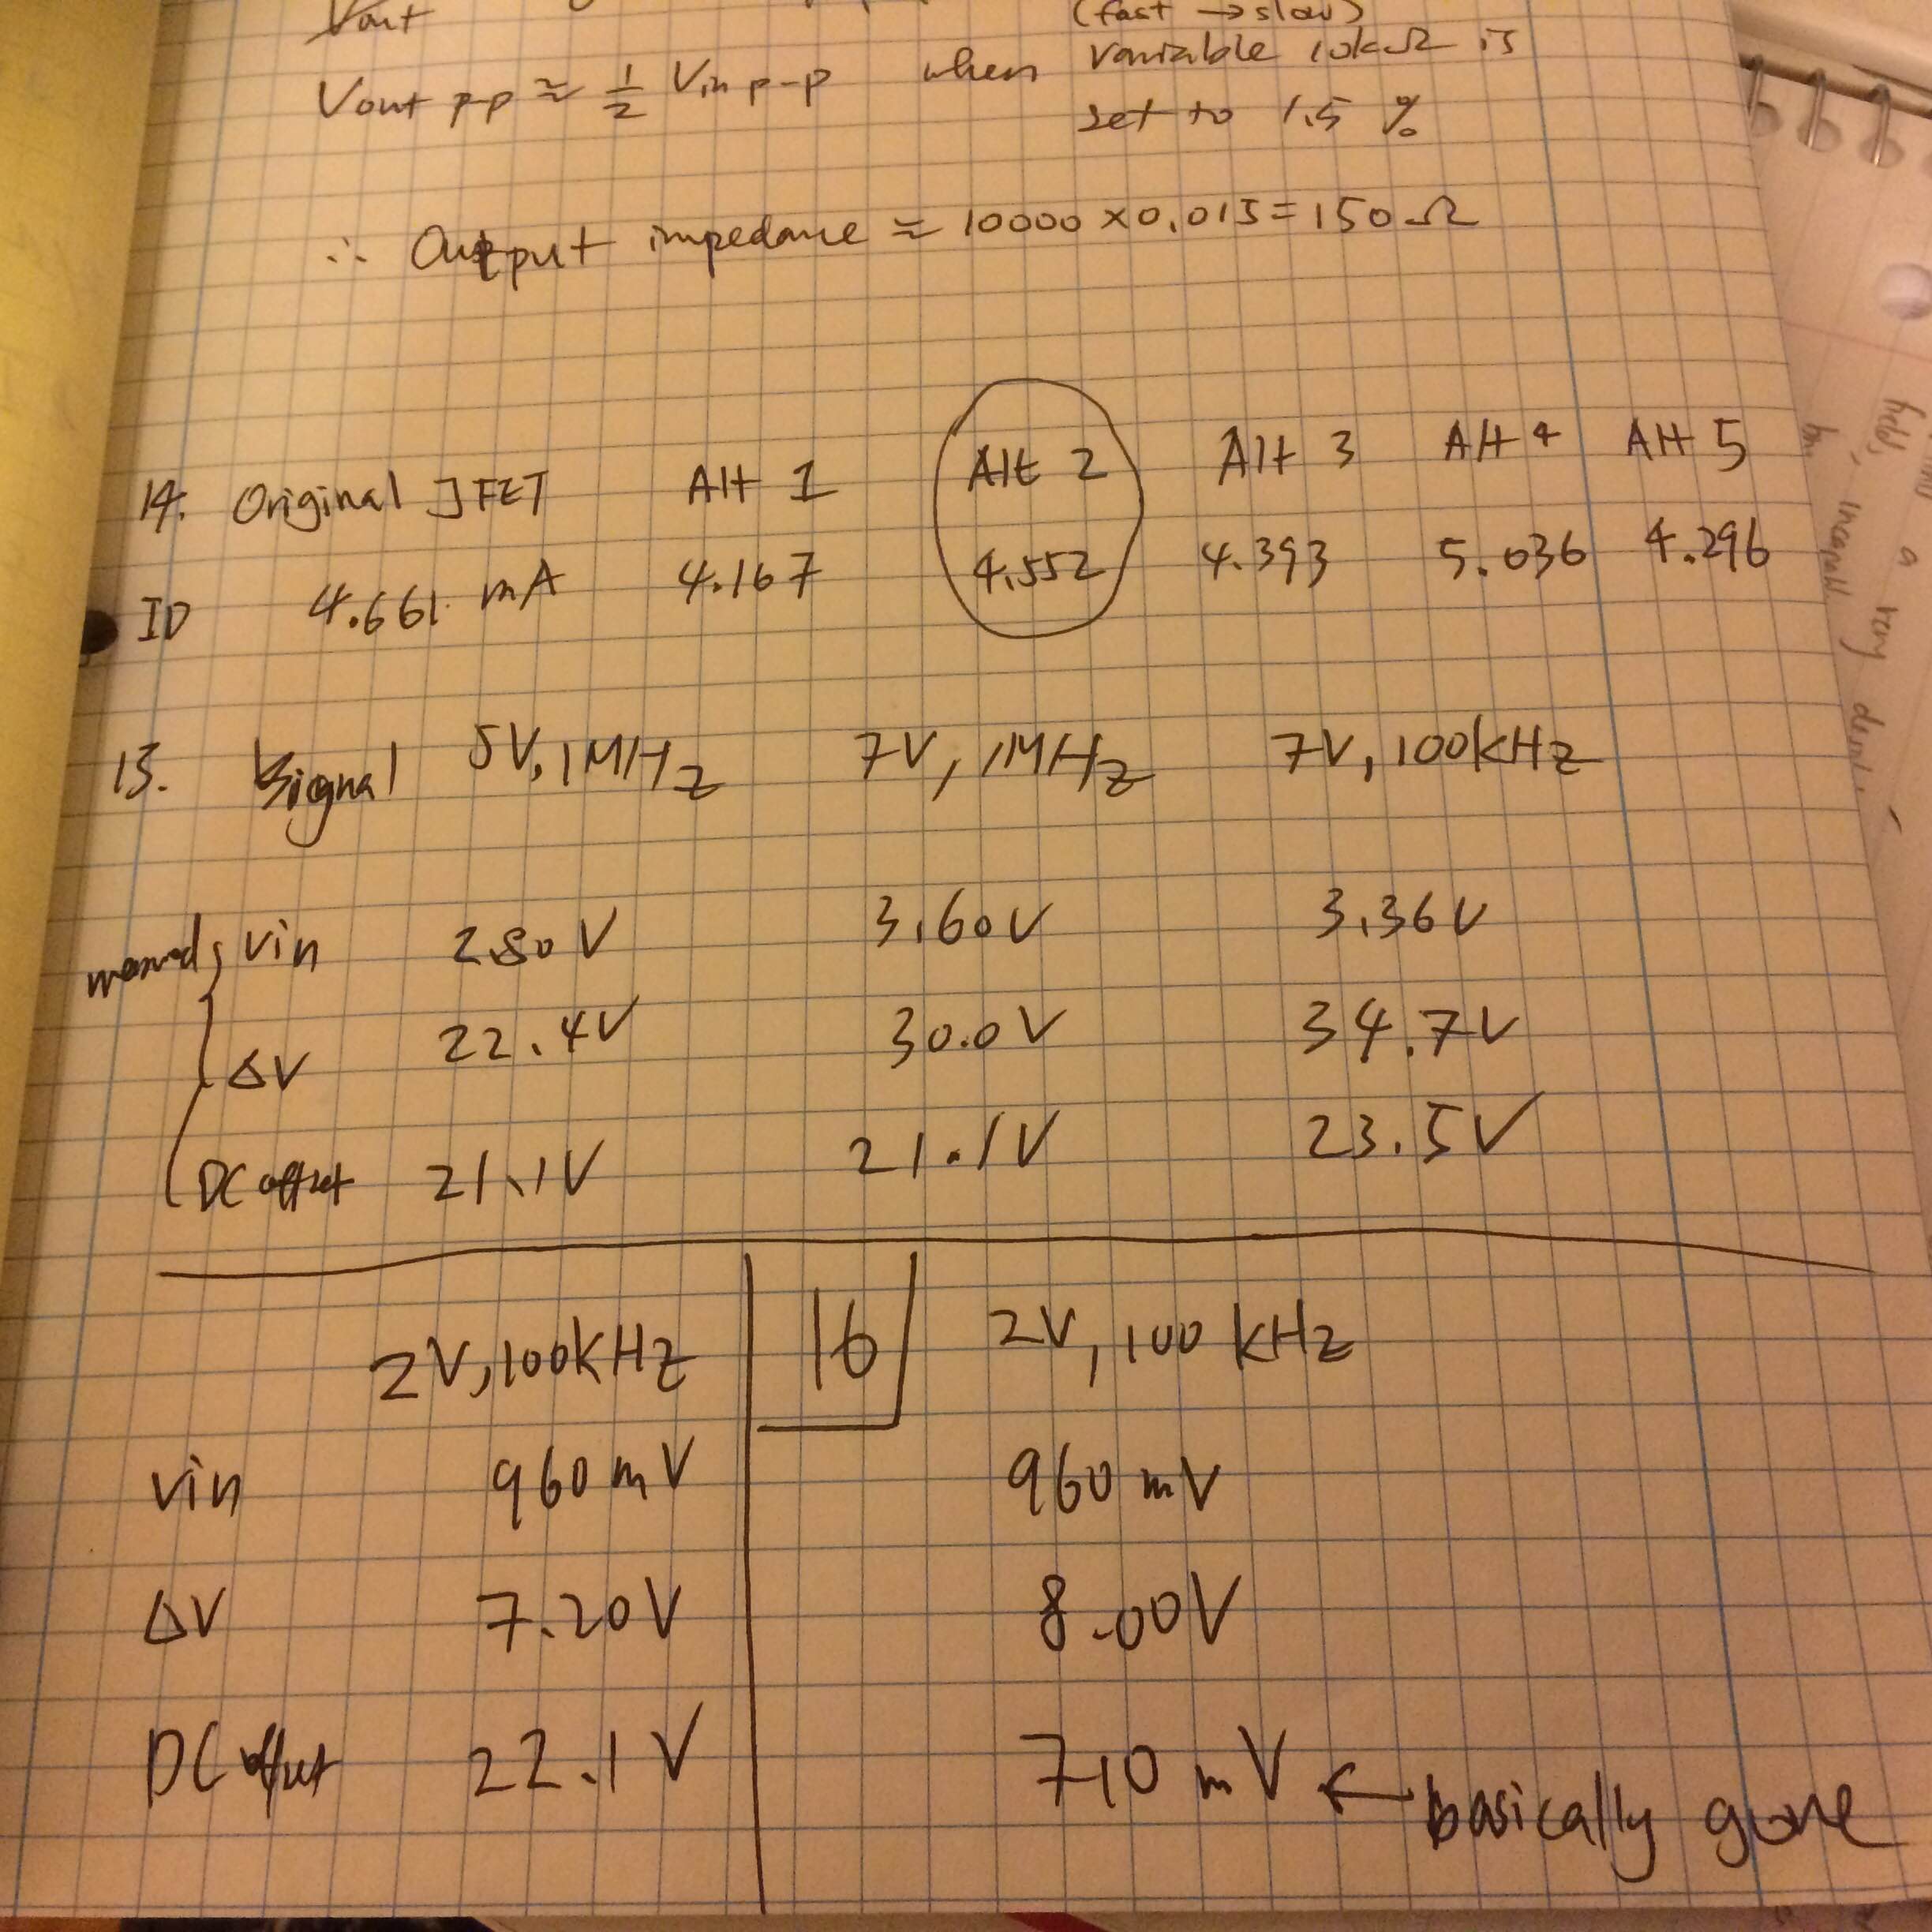 Vout
(fast → slow)
Vout pp ≈ 1/2 Vin p-p when variable 10kΩ is
set to 1.5 %
∴ Output impedance ≈ 10000 × 0.015 = 150 Ω
14. Original JFET Alt 1 Alt 2 Alt 3 Alt 4 Alt 5
ID 4.661 mA 4.167 4.552 4.393 5.036 4.296
15. Signal 5V, 1MHz 7V, 1MHz 7V, 100kHz
vin 2.80 V 3.60V 3.36V
ΔV 22.4V 30.0V 34.7V
DC offset 21.1V 21.1V 23.5V
2V, 100kHz 16 2V, 100 kHz
vin 960 mV 960 mV
ΔV 7.20V 8.00V
DC offset 22.1V 710 mV ← basically gone
a very
incapable